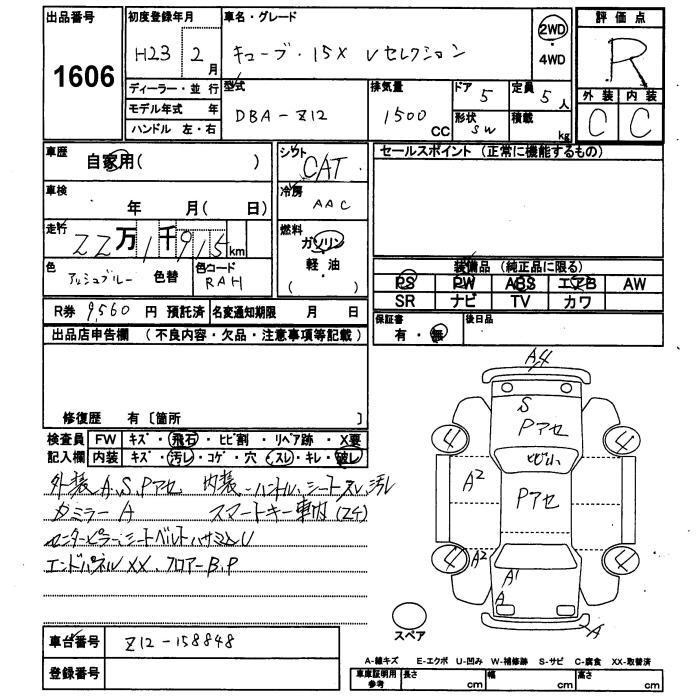 出品番号
1606
初度登録年月
H23 2 月
ディーラー・並行
モデル年式 年
ハンドル 左・右
車名・グレード
キューブ・15X Vセレクション
2WD
・
4WD
型式
DBA-Z12
排気量
1500 CC
ドア 5
形状 SW
定員 5 人
積載 kg
評価点
R
外装 内装
C C
車歴
自家用( )
車検
年 月( 日)
走行
22万1千915km
色
アッシュブルー 色替
色コード
RAH
シフト
CAT
冷房
AAC
燃料
ガソリン
軽・油
( )
R券 9,560 円 預託済 名変通知期限 月 日
セールスポイント (正常に機能するもの)
装備品 (純正品に限る)
PS PW ABS エアB AW
SR ナビ TV カワ
保証書
有・無
後日品
出品店申告欄 (不良内容・欠品・注意事項等記載)
修復歴 有〔箇所 〕
検査員 FW キズ・飛石・ヒビ割・リペア跡・X要
記入欄 内装 キズ・汚レ・コゲ・穴・スレ・キレ・破レ
外装 A、S、Pアセ 内装、ハンドル、シートスレ、汚レ
カミラー A スマートキー車内(24)
センターピラー、シートベルトハサミ込U
エンドパネルXX、フロアーB、P
A4
S
Pアセ
4 4
A2
Pアセ
4 4
A2
A1
A
A
スペア
車台番号 Z12-158848
登録番号
A-線キズ E-エクボ U-凹み W-補修跡 S-サビ C-腐食 XX-取替済
車庫証明用
参考
長さ cm 幅 cm 高さ cm